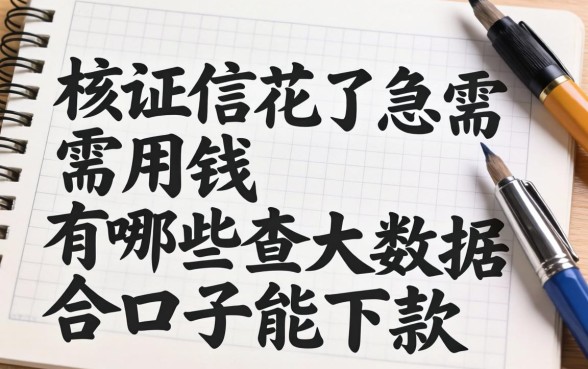 核证信花了急需
需用钱
有哪些查大数据
合口子能下款